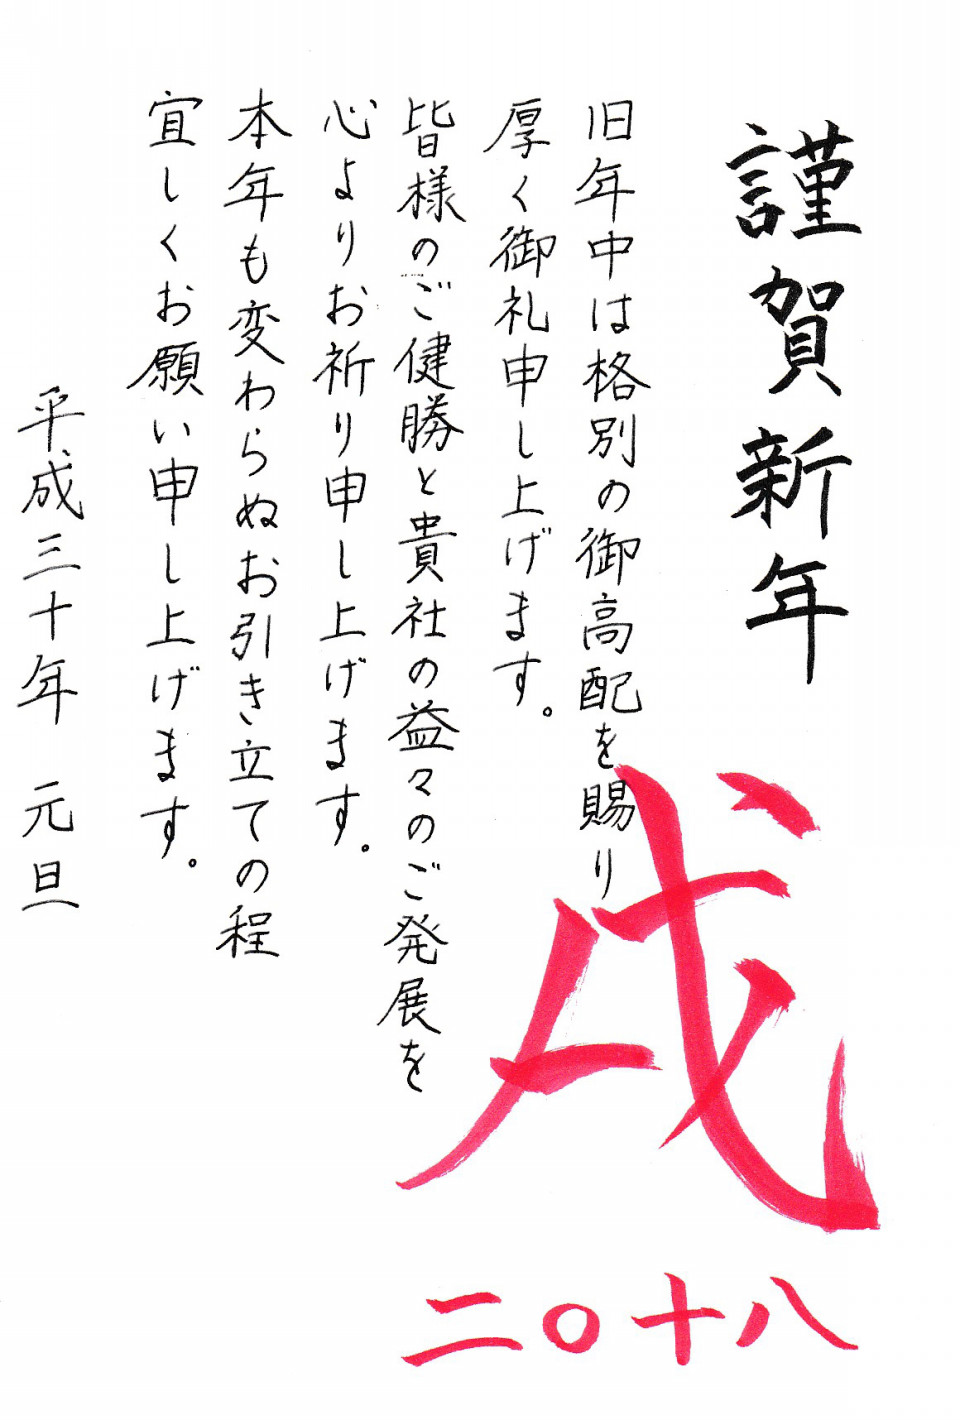 謹賀新年
旧年中は格別の御高配を賜り
厚く御礼申し上げます。
皆様のご健勝と貴社の益々のご発展を
心よりお祈り申し上げます。
本年も変わらぬお引き立ての程
宜しくお願い申し上げます。
平成三十年 元旦
戌
二〇十八